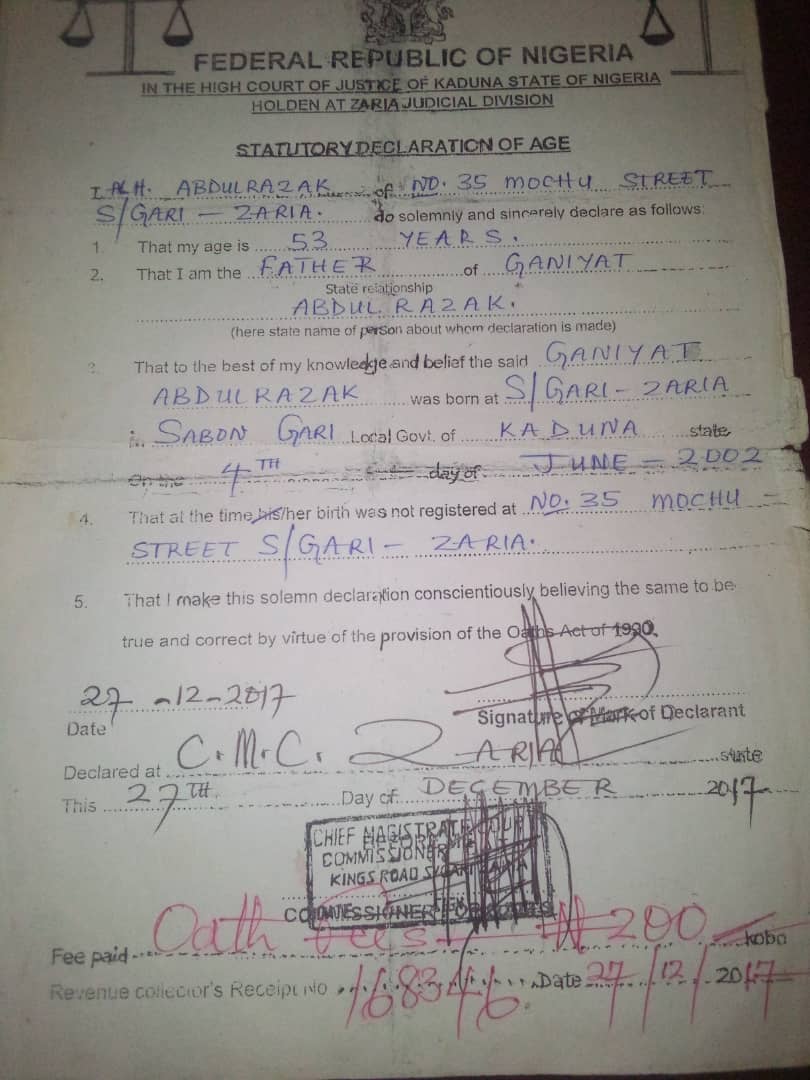 FEDERAL REPUBLIC OF NIGERIA
IN THE HIGH COURT OF JUSTICE OF KADUNA STATE OF NIGERIA
HOLDEN AT ZARIA JUDICIAL DIVISION
STATUTORY DECLARATION OF AGE
I ALH. ABDULRAZAK of NO. 35 MOCHU STREET
S/GARI - ZARIA. do solemnly and sincerely declare as follows:
1. That my age is 53 YEARS.
2. That I am the FATHER of GANIYAT
State relationship
ABDUL RAZAK.
(here state name of person about whom declaration is made)
3. That to the best of my knowledge and belief the said GANIYAT
ABDULRAZAK was born at S/GARI - ZARIA
in SABON GARI Local Govt. of KADUNA state
On the 4TH day of JUNE - 2002
4. That at the time his/her birth was not registered at NO. 35 MOCHU
STREET S/GARI - ZARIA.
5. That I make this solemn declaration conscientiously believing the same to be
true and correct by virtue of the provision of the Oaths Act of 1990.
27-12-2017
Date
Signature or Mark of Declarant
Declared at C.M.C. ZARIA state
This 27TH Day of DECEMBER 2017
CHIEF MAGISTRATE COURT
COMMISSIONER
KINGS ROAD S/GARI
COMMISSIONER FOR OATHS
Fee paid Oath fees ₦200 kobo
Revenue collector's Receipt No 168346 Date 27/12/2017